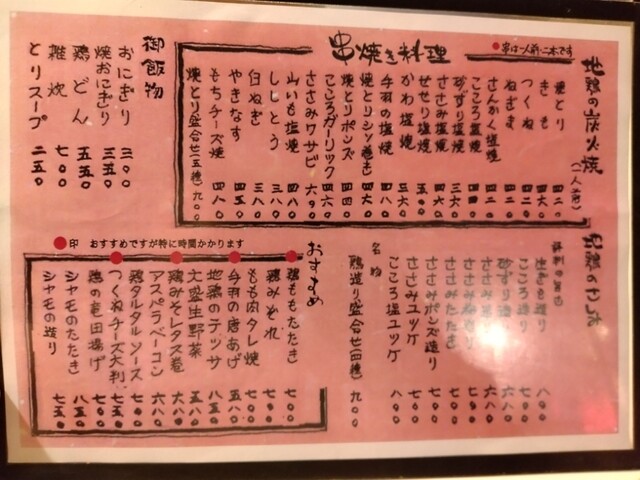 串焼き料理
●串は一人前二本です
地鶏の炭火焼
(一人前)
焼とり 四二〇
きも 四六〇
つくね 四二〇
ねぎま 四二〇
さんかく塩焼
こころ塩焼 四二〇
砂ずり塩焼 三六〇
ささみ塩焼 四六〇
せせり塩焼 五〇〇
かわ塩焼 三六〇
手羽の塩焼 四八〇
焼とりシソ巻き 四六〇
焼とりポンズ 四四〇
こころガーリック
ささみワサビ 六九〇
山いも塩焼 四八〇
ししとう 三八〇
白ねぎ 三八〇
やきなす 四五〇
もちチーズ焼 四八〇
焼とり盛合せ(五種) 九〇〇
御飯物
おにぎり 三〇〇
焼おにぎり 三五〇
鶏どん 五五〇
雑炊 七〇〇
とりスープ 二五〇
生きも造り 八〇〇
こころ造り 七〇〇
砂ずり造り 六八〇
ささみ造り 七〇〇
ささみたたき 七〇〇
ささみポンズ造り 七〇〇
ささみユッケ 八〇〇
こころ塩ユッケ 八〇〇
名物
鶏造り盛合せ(四種) 九〇〇
おすすめ
●印 おすすめですが特に時間かかります
鶏ももたたき 七〇〇
鶏みぞれ 七〇〇
もも肉タレ焼 七〇〇
手羽の唐あげ 五八〇
地鶏のテッサ 八五〇
大盛生野菜 五八〇
鶏みそレタス巻
アスパラベーコン 六八〇
鶏タルタルソース 七〇〇
つくねチーズ大判 七五〇
鶏の竜田揚げ 七〇〇
シャモのたたき 八五〇
シャモの造り 七五〇